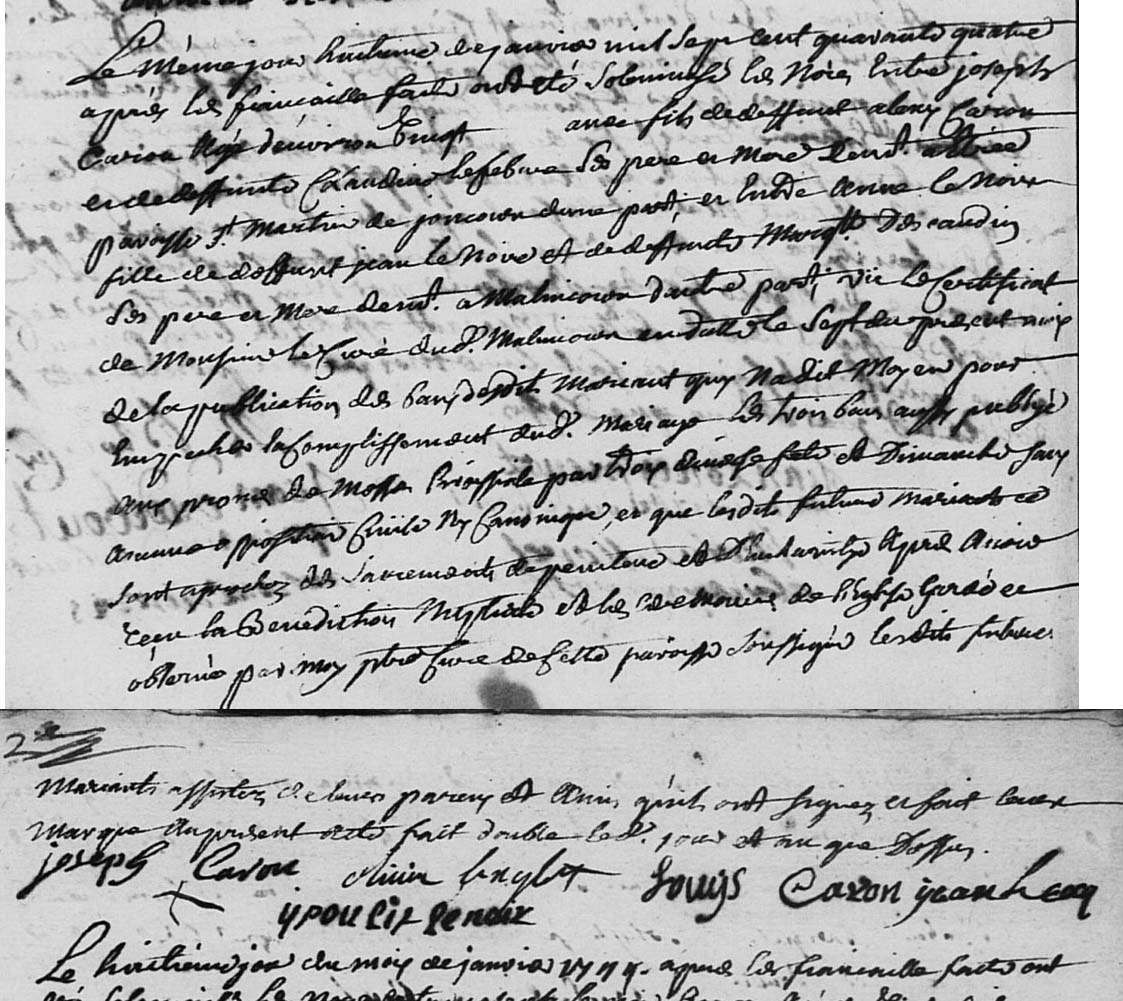 Le Même jour huitieme de janvier mil sept cent quarante quatre
aprés les fiancaille faite ont été solemnisé les Noces Entre joseph
Caron Agé denviron vingt ans fils de deffunt alexy Caron
et de deffunte Claudine Lefebvre ses pere et Mere demt.
paroisse St Martin de joncour dune part, et Anne le Noire
fille de deffunt jean le Noire et de deffunte Margtte Descaudin
ses pere et Mere demt. a Malincour dautre part, vü le Certificat
de Monsieur le Curé dud. Malincour en datte le sept du present mois
de la publication des bans desdits Mariant quy Na dit Moyen pour
Empecher lacomplissement dud. Mariage les trois bans aussy publiés
aux prone de Messe paroissiale par trois diverse fete et Dimanche sans
aucune opposition Civile Ny Canonique, et que lesdits futurs mariants se
sont aprochez des sacrements de penitence et Deucharistye Apres Avoir
reçeu la Benediction Nuptiale et les ceremonies de l'Eglise Gardée et
observé par moy ptre Curé de Cette paroisse soussigné lesdits futures
2e
Mariants assistez de leurs parens et Amis qu'ils ont signez et fait leurs
Marque au present acte fait double led. jour et an que Dessus.
joseph Caron olivier Louys Caron jean Lecocq
ypoulit lenoir
Le huitieme jour du mois de janvier 1744. apres les fiancaille faite ont